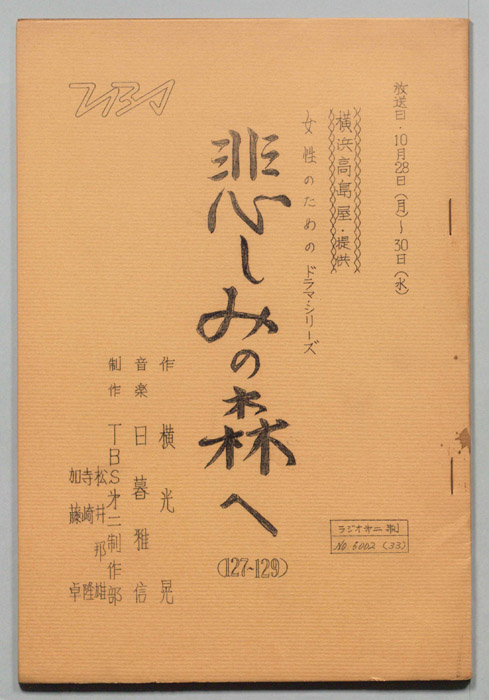 放送日・10月28日(月)〜30日(水)
横浜高島屋・提供
女性のためのドラマ・シリーズ
悲しみの森へ
(127〜129)
作 横光晃
音楽 日暮雅信
制作 TBS第二制作部
松井邦雄
寺崎隆
加藤卓
TBS
ラジオ第二制
No. 6002 (33)